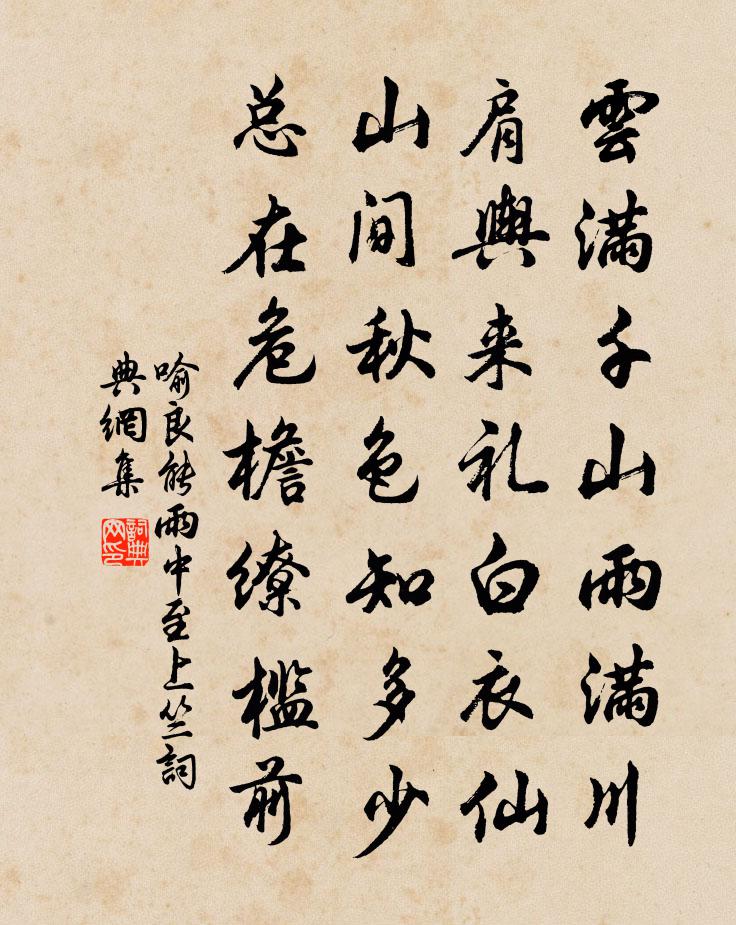 雲滿千山雨滿川
肩輿来礼白衣仙
山間秋色知多少
总在危檐繚檻前
喻良能雨中至上竺詞
典網集
詞典
网印